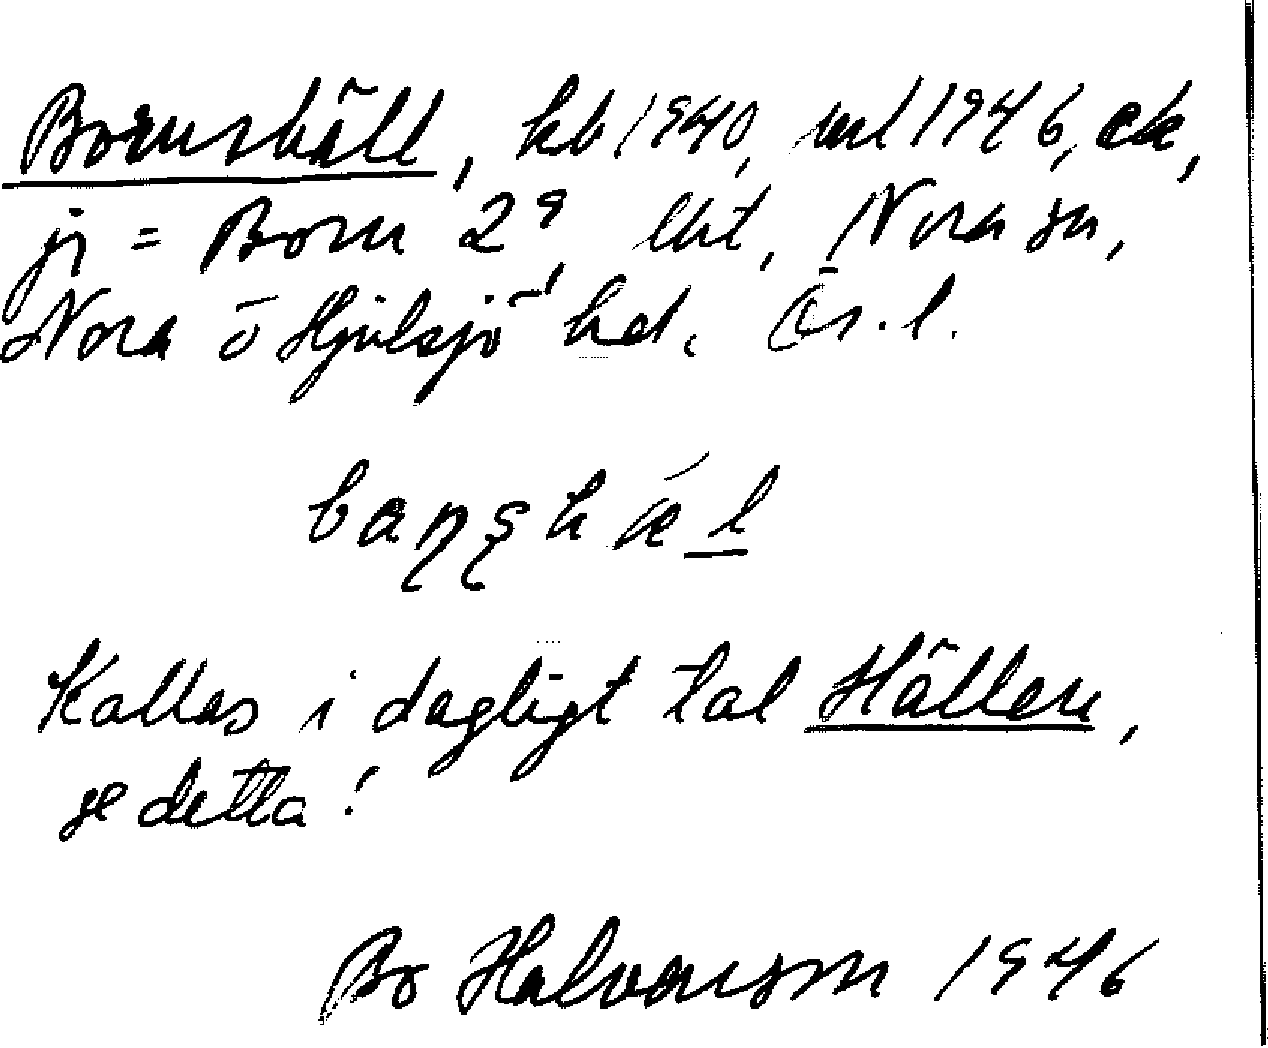 Bornshäll, kb 1940, ml 1946, ek,
ji = Born 2⁹, lht, Nora sn,
Nora o Hjulsjö hd. Ös. l.
baṇṣhä́l
Kallas i dagligt tal Hällen,
se detta!
Bo Halvarson 1946